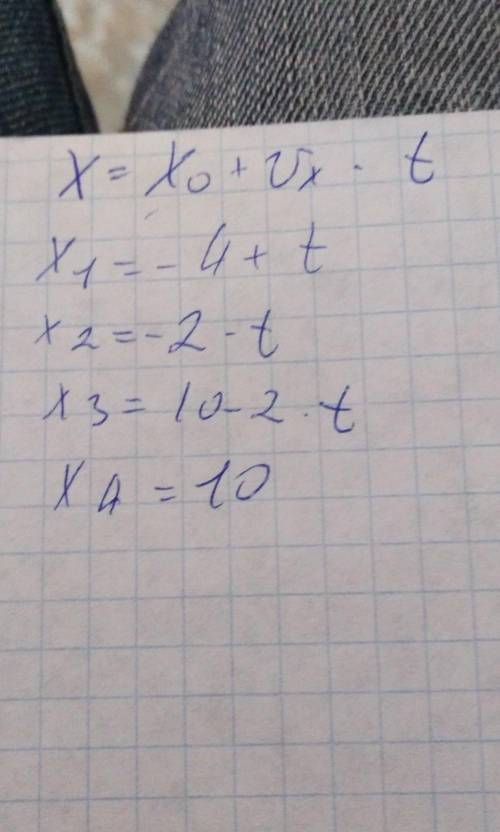 X = X₀ + Vₓ · t
x₁ = - 4 + t
x₂ = - 2 - t
x₃ = 10 - 2 · t
x₄ = 10